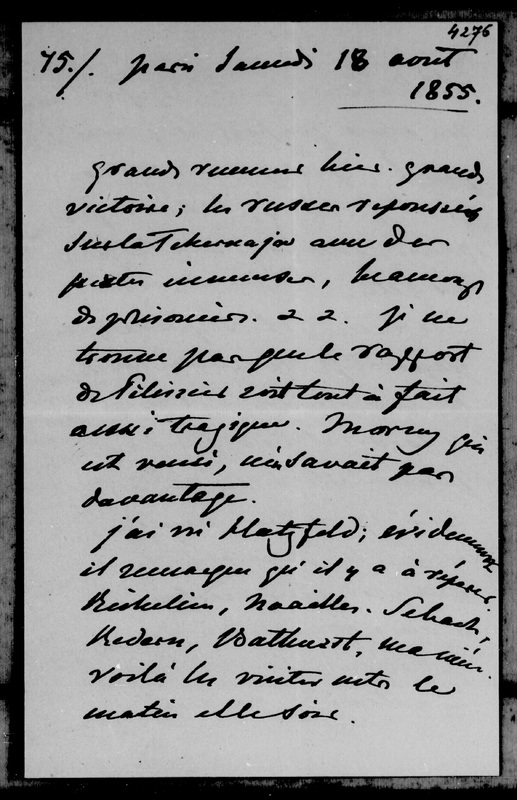 4276
75./. paris Samedi 18 aout
1855.
grands rumeurs hier. grande
victoire; les russes repoussés
sur la Tchernaja avec des
pertes immenses, beaucoup
de prisoniers. 2 2. je ne
trouve pas que le rapport
de Pelissier soit tout à fait
aussi tragique. Morny qui
est venu, n'en savait pas
davantage.
j'ai vu Hatzfeld; évidemment
il remarque qu'il y a à réparer.
Richelieu, Noailles. Sebach,
Kedern, Bathurst,
voilà les visites entre le
matin et le soir.